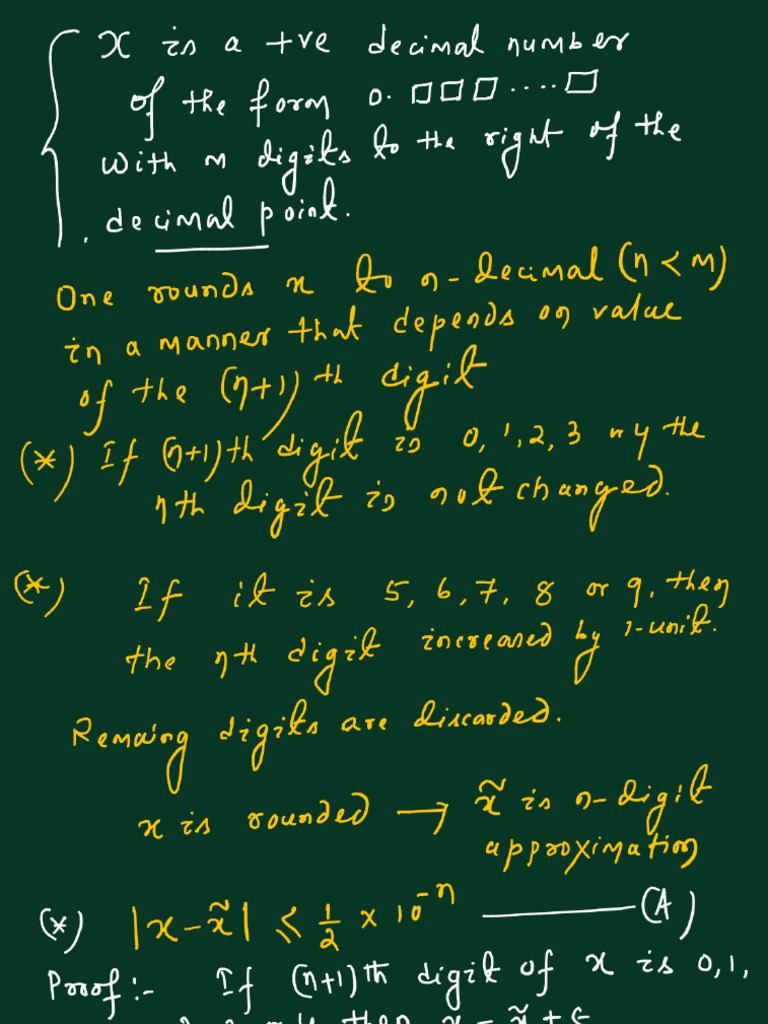 x is a +ve decimal number
of the form 0. □□□ .... □
with m digits to the right of the
decimal point.
One rounds x to n-decimal (n < m)
in a manner that depends on value
of the (n+1)th digit
(*) If (n+1)th digit is 0, 1, 2, 3 or 4 the
nth digit is not changed.
(*) If it is 5, 6, 7, 8 or 9, then
the nth digit increased by 1-unit.
Remaing digits are discarded.
x is rounded → x̃ is n-digit
approximation
(*) |x - x̃| ≤ 1/2 × 10⁻ⁿ ——— (A)
Proof:- If (n+1)th digit of x is 0, 1,
then x = x̃ + ε